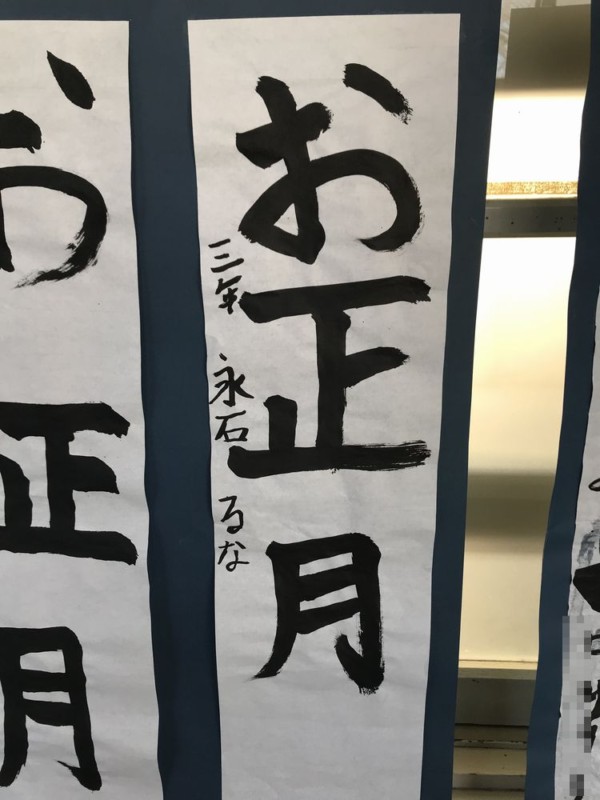 お正月
三年 永石 るな
お正月